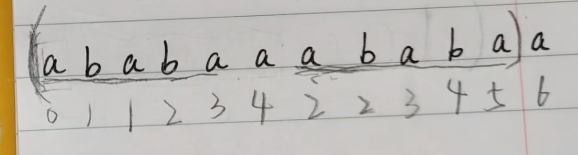 (a b a b a a a b a b a) a
0 1 1 2 3 4 2 2 3 4 5 6